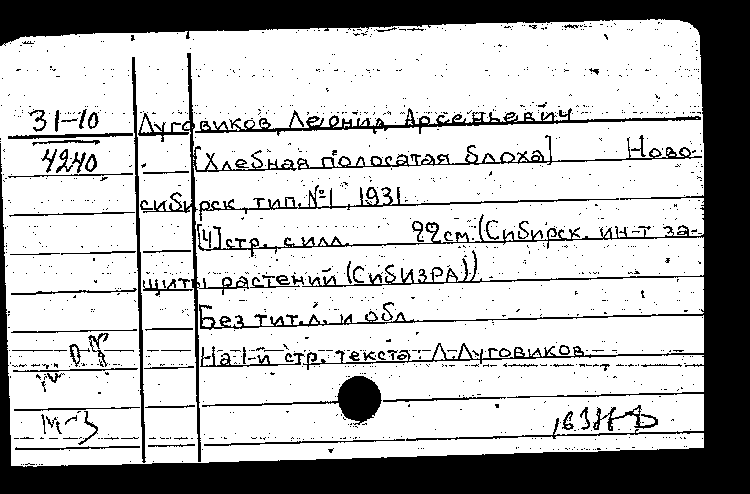 31-10 Луговиков, Леонид Арсеньевич
4240 [Хлебная полосатая блоха] Ново-
сибирск, тип. №1, 1931.
[4] стр., с илл. 22 см. (Сибирск. ин-т за-
щиты растений (СибИЗРА))
Без тит. л. и обл.
На 1-й стр. текста: Л. Луговиков.
М-3